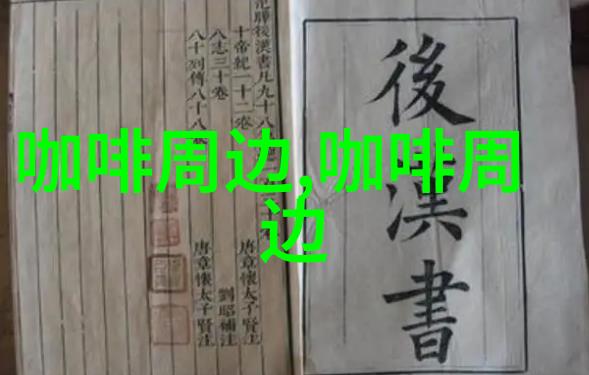 咖啡周边,咖啡周
边
後漢書
後漢書凡九十八
十帝紀一十二卷 唐章懷太子賢注
八志三十卷 劉昭補注
八十列傳八十八卷 唐章懷太子賢注